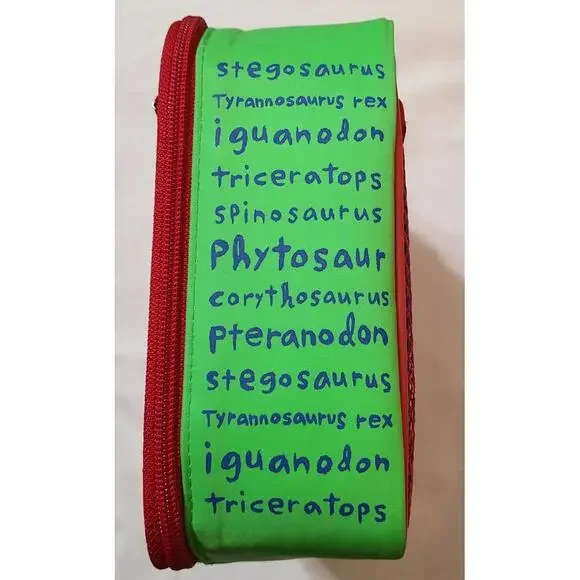 stegosaurus
Tyrannosaurus rex
iguanodon
triceratops
spinosaurus
Phytosaur
corythosaurus
pteranodon
stegosaurus
Tyrannosaurus rex
iguanodon
triceratops